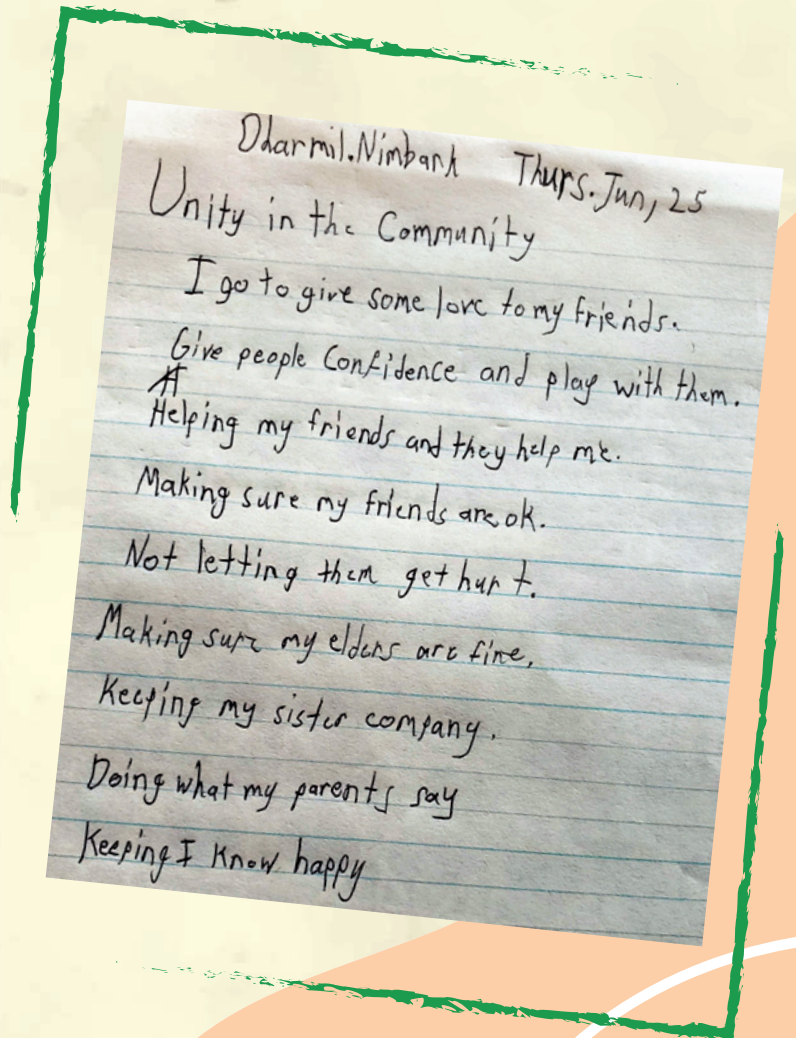 Dharmil.Nimbark Thurs.Jun, 25
Unity in the Community
I go to give some love to my friends.
Give people Confidence and play with them.
Helping my friends and they help me.
Making sure my friends are ok.
Not letting them get hurt.
Making sure my elders are fine,
Keeping my sister company.
Doing what my parents say
Keeping I know happy